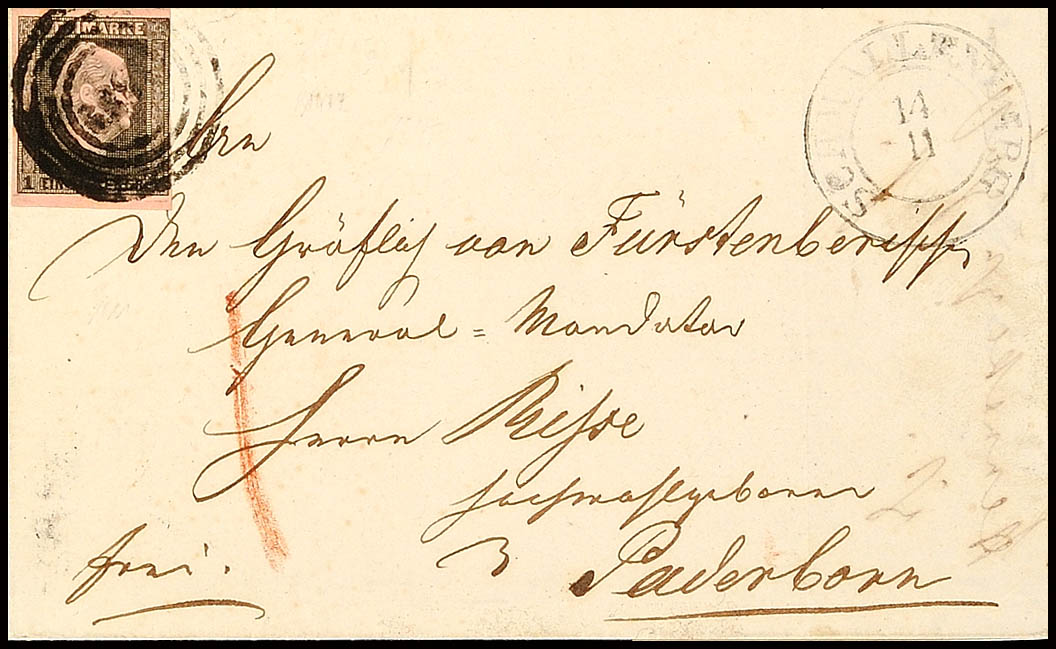 FREIMARKE
1 EIN
SCHMALLENBERG
14
11
An
Den Gräflich von Fürstenbersch
General = Mandatar
Herrn Risse
hochwohlgeboren
Paderborn
frei.